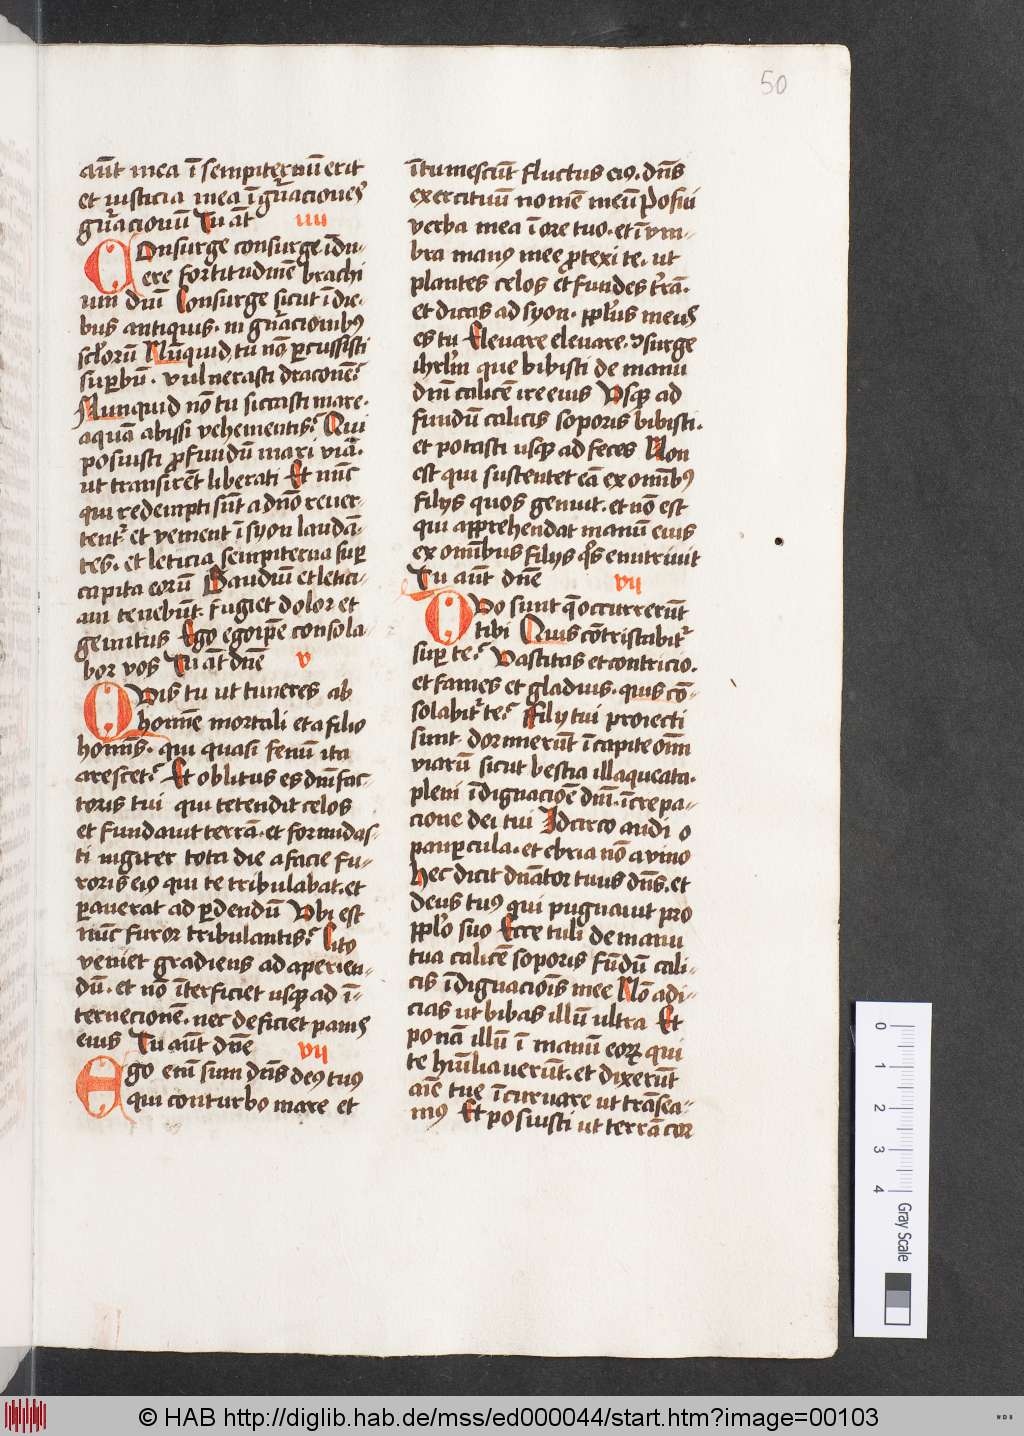 50
aūt mea ī sempiternū erit
et iusticia mea ī gn̄aciones
gn̄acionū Tu āt iiii
COnsurge consurge īdu-
ere fortitudinē brachi
um dnī Consurge sicut ī die-
bus antiquis. in gn̄acionibꝰ
sclorū Nūquid tu nō ꝑcussisti
suꝑbū. vulnerasti draconē?
Nunquid nō tu siccasti mare.
aquā abissi vehementis? Qui
posuisti ꝓfundū mari viā.
ut transirēt liberati Et nūc
qui redempti sūt a dnō rever-
tentr̄ et venient ī syon laudā-
tes. et leticia sempiterna suꝑ
capita eorū Gaudiū et letici-
am tenebūt. fugiet dolor et
gemitus Ego ego ip̄e consola-
bor vos Tu āt dnē v
QVis tu ut timeres ab
homīe mortali et a filio
homīs. qui quasi fenū ita
arescet? Et oblitus es dnī fac-
toris tui qui tetendit celos
et fundavit terrā. et formidas-
ti iugiter tota die a facie fu-
roris eiꝰ qui te tribulabat. et
ꝑaverat ad ꝑdendū Vbi est
nūc furor tribulantis? Cito
veniet gradiens ad aperien-
dū. et nō īterficiet usqꝫ ad ī-
ternecionē. nec deficiet panis
eius Tu aūt dnē vii
EGo em̄ sum dn̄s deꝰ tuus
qui conturbo mare et
ītumescūt fluctus eiꝰ. dn̄s
exercituū nomē meū Posui
verba mea ī ore tuo. et ī vm-
bra manꝰ mee ꝓtexi te. ut
plantes celos et fundes tr̄ā.
et dicas ad syon. pplus meus
es tu Elevare elevare. ꝯsurge
ihrlm̄ que bibisti de manu
dnī calicē ire eius Vsqꝫ ad
fundū calicis soporis bibisti.
et potasti usqꝫ ad feces Non
est qui sustentet eā ex omībꝰ
filijs quos genuit. et nō est
qui apprehendat manū eius
ex omībus filijs qōs enutrivit
Tu aūt dnē vii
DVo sunt q̄ occurrerūt
tibi Quis cōtristabitr̄
suꝑ te? Vastitas et contricio.
et fames et gladius. quis cō-
solabitr̄ te? Filij tui proiecti
sunt. dormierūt ī capite omī
viarū sicut bestia illaqueata.
pleni īdignacioē dnī. īcrepa-
cione dei tui Idcirco audi o
pauꝑcula. et ebria nō a vino
Hec dicit dnātor tuus dn̄s. et
deus tuꝰ qui pugnavit pro
pplo suo Ecce tuli de manu
tua calicē soporis fūdū cali-
cis īdignacioīs mee Nō adi-
cias ut bibas illū ultra Et
ponā illū ī manū eorꝝ qui
te hūiliaverūt. et dixerūt
aīe tue īcurvare ut trāsea-
mꝰ Et posuisti ut terrā cor
0 1 2 3 4
Gray Scale
© HAB http://diglib.hab.de/mss/ed000044/start.htm?image=00103